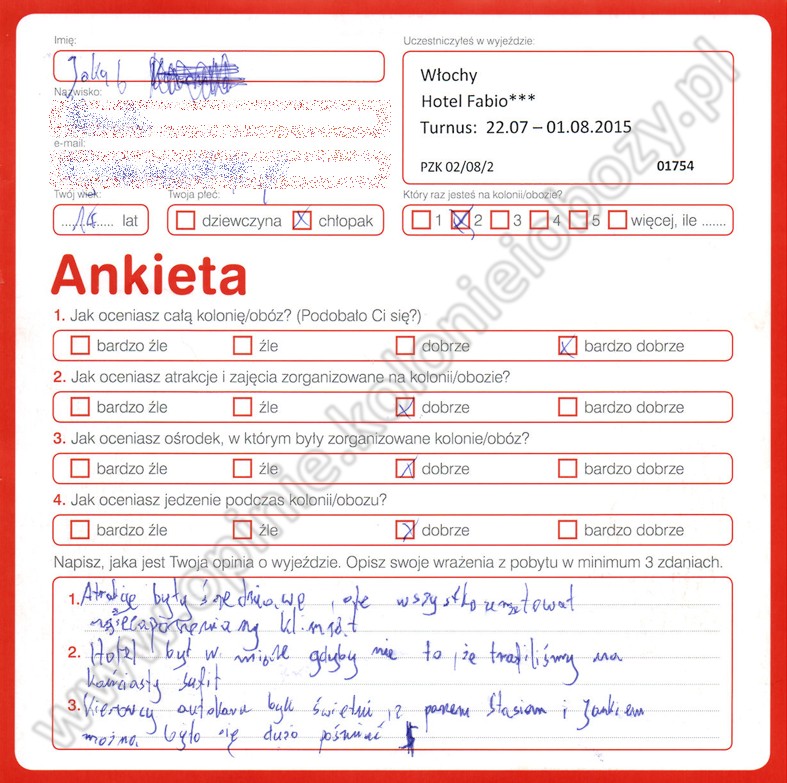 Imię:
Jakub
Uczestniczyłeś w wyjeździe:
Włochy
Hotel Fabio***
Turnus: 22.07 – 01.08.2015
PZK 02/08/2 01754
Nazwisko:
e-mail:
Twój wiek:
lat
Twoja płeć:
dziewczyna chłopak
Który raz jesteś na kolonii/obozie?
1 2 3 4 5 więcej, ile .......
Ankieta
1. Jak oceniasz całą kolonię/obóz? (Podobało Ci się?)
bardzo źle źle dobrze bardzo dobrze
2. Jak oceniasz atrakcje i zajęcia zorganizowane na kolonii/obozie?
bardzo źle źle dobrze bardzo dobrze
3. Jak oceniasz ośrodek, w którym były zorganizowane kolonie/obóz?
bardzo źle źle dobrze bardzo dobrze
4. Jak oceniasz jedzenie podczas kolonii/obozu?
bardzo źle źle dobrze bardzo dobrze
Napisz, jaka jest Twoja opinia o wyjeździe. Opisz swoje wrażenia z pobytu w minimum 3 zdaniach.
1. Atrakcje były średniawe, ale wszystko uratował
klimat
2. Hotel był w miare gdyby nie to, że trafiliśmy na
sufit
3. Kierowcy autokaru byli świetni, z panem Stasiem i Jankiem
można było się dużo pośmiać
www.opinie.kolonieiobozy.pl